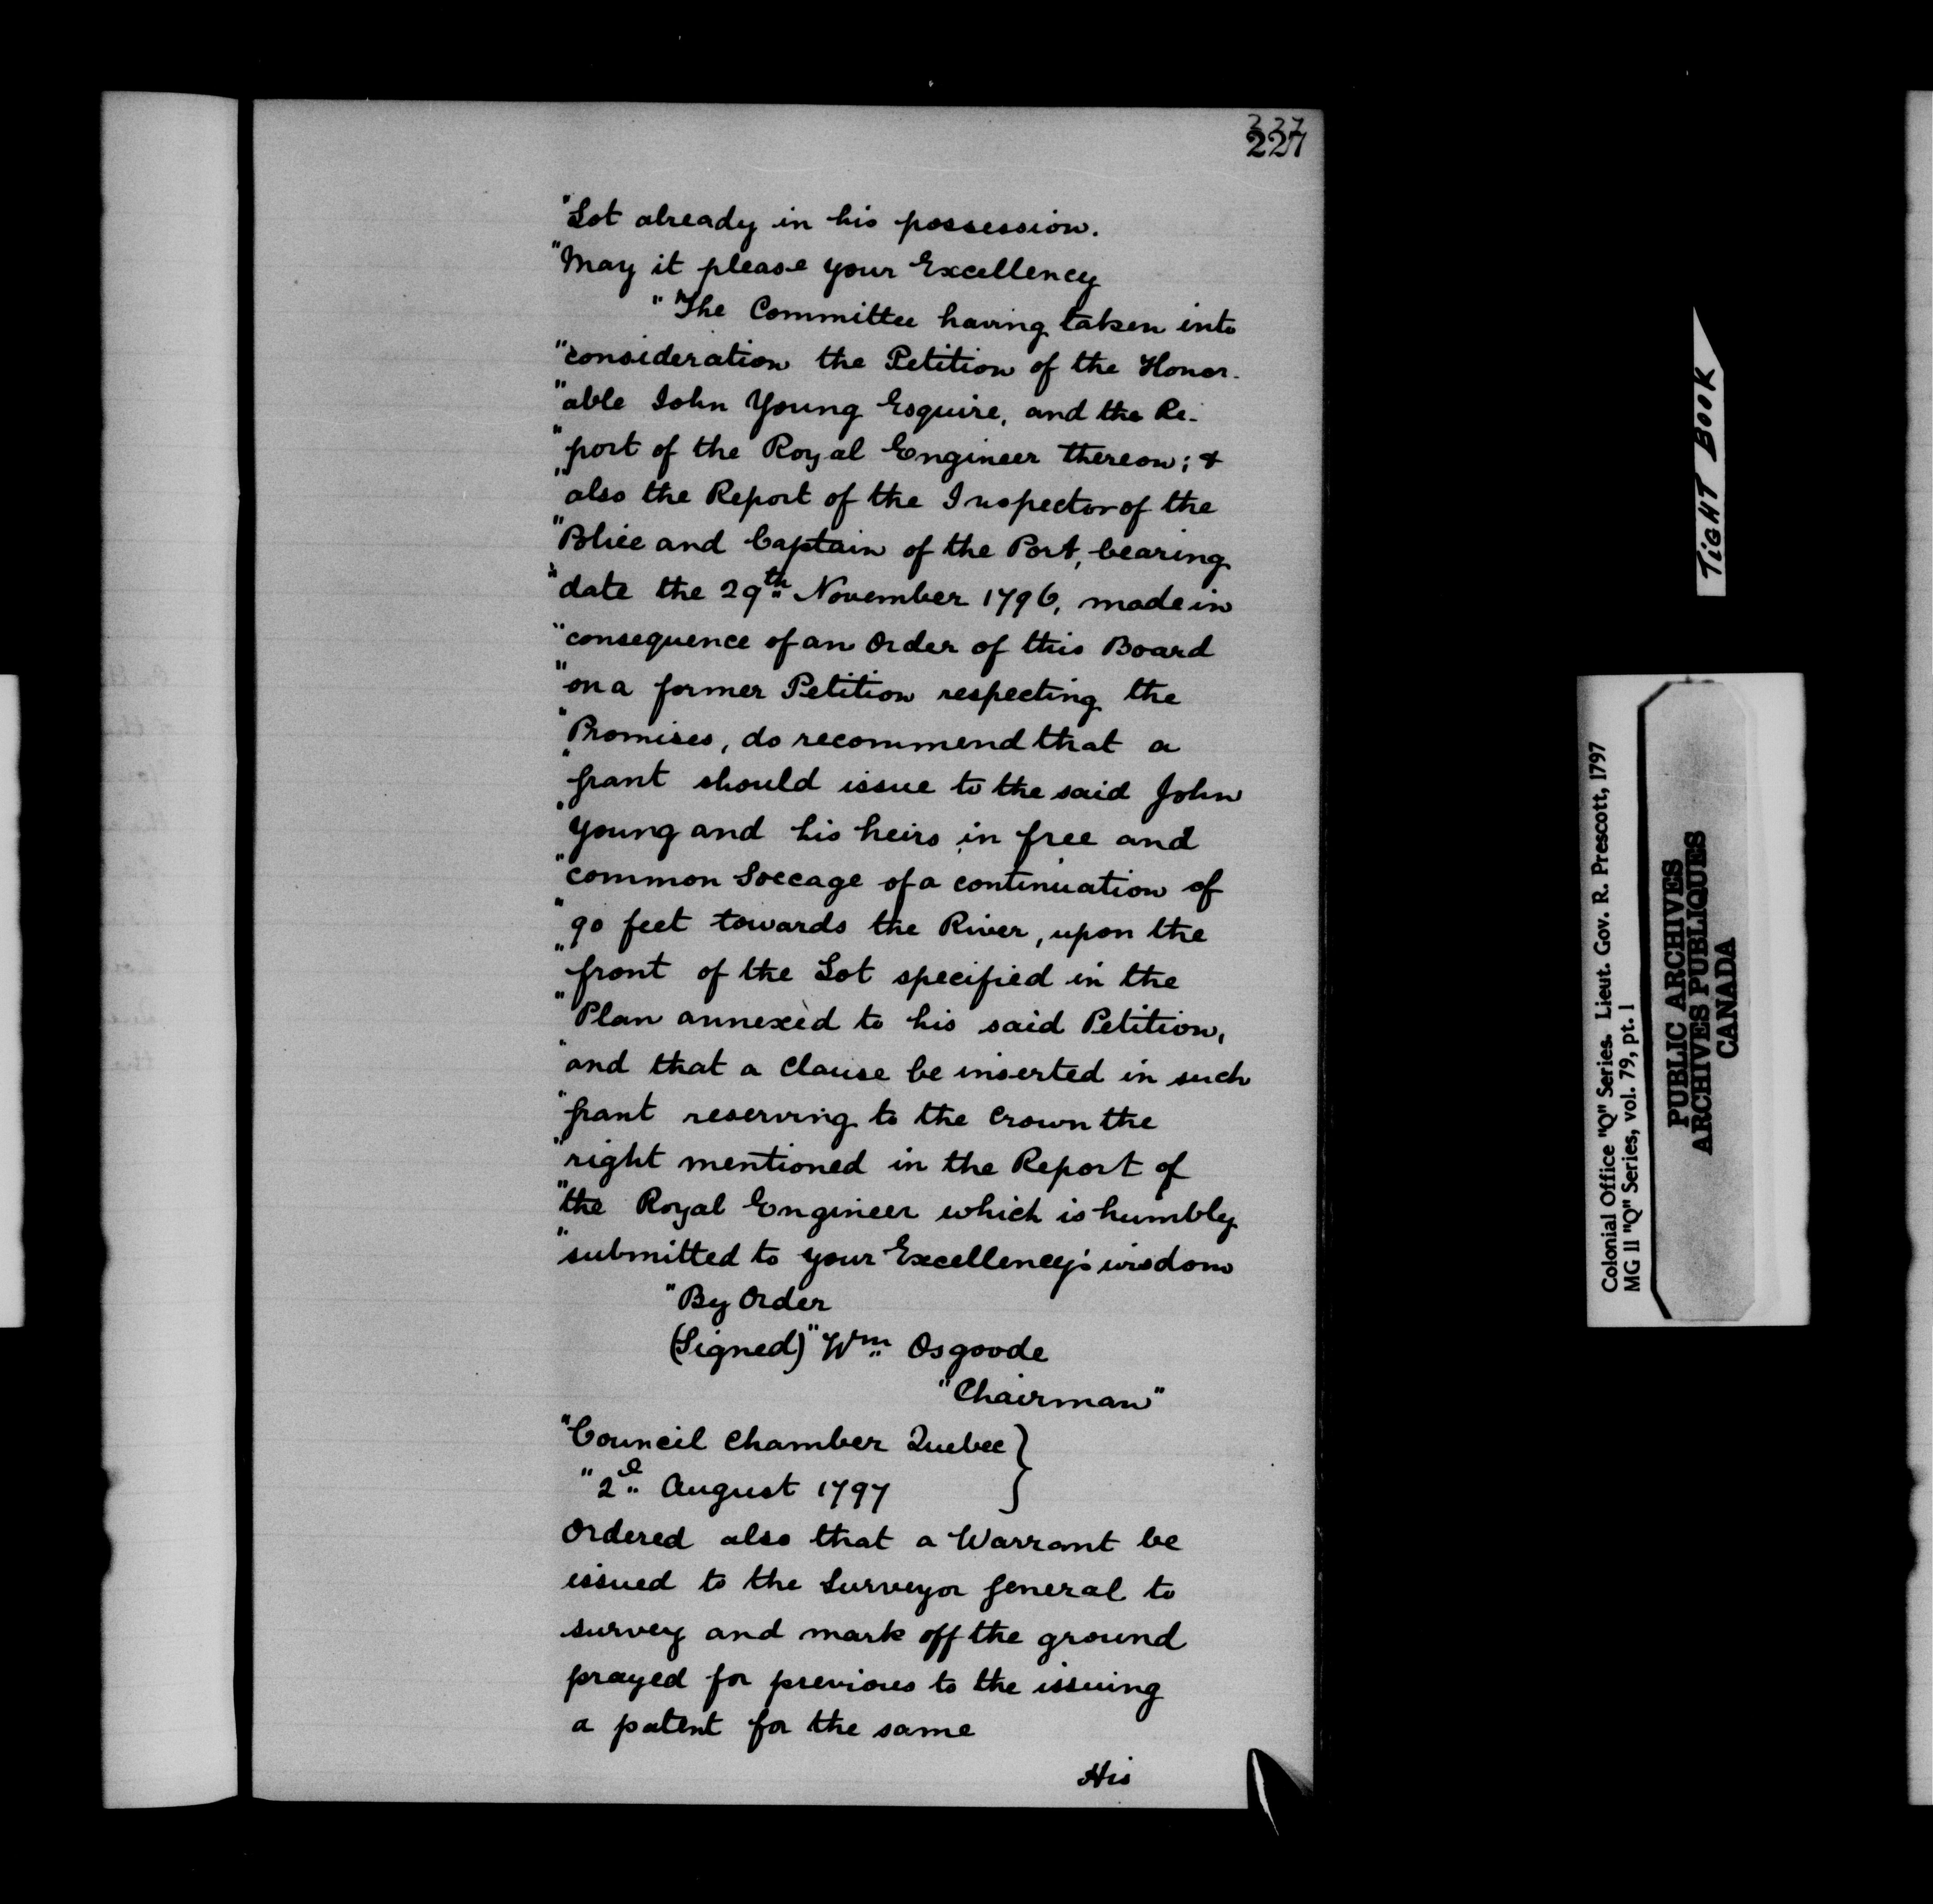 337
227
"Lot already in his possession.
"May it please your Excellency
"The Committee having taken into
"consideration the Petition of the Honor-
"able John Young Esquire, and the Re-
"port of the Royal Engineer thereon; &
"also the Report of the Inspector of the
"Police and Captain of the Port, bearing
"date the 29th November 1796, made in
"consequence of an Order of this Board
"on a former Petition respecting the
"Promises, do recommend that a
"grant should issue to the said John
"Young and his heirs in free and
"common Soccage of a continuation of
"90 feet towards the River, upon the
"front of the Lot specified in the
"Plan annexed to his said Petition,
"and that a Clause be inserted in such
"grant reserving to the Crown the
"right mentioned in the Report of
"the Royal Engineer which is humbly
"submitted to your Excellency's wisdom
"By Order
(Signed) "Wm Osgoode
"Chairman"
"Council Chamber Quebec }
"2d August 1797
Ordered also that a Warrant be
issued to the Surveyor General to
survey and mark off the ground
prayed for previous to the issuing
a patent for the same
His
TIGHT BOOK
Colonial Office "Q" Series. Lieut. Gov. R. Prescott, 1797
MG 11 "Q" Series, vol. 79, pt. 1
PUBLIC ARCHIVES
ARCHIVES PUBLIQUES
CANADA